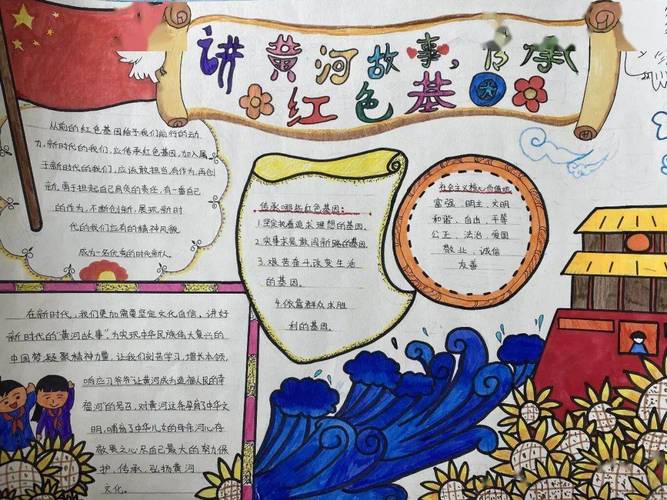 讲黄河故事,传承
红色基因
从前的红色基因给予我们前行的动
力,新时代的我们,应传承红色基因,加入属
于新时代的我们,应该敢担当,有作为,再创
新,勇于担起自己肩负的责任,有一番自己
的作为,不断创新,展现新时
代的我们应有的精神风貌
成为一名优秀的时代新人。
传承哪些红色基因:
1.坚定执着追求理想的基因.
2.实事求是敢闯新路的基因.
3.艰苦奋斗改变生活
的基因.
4.依靠群众求胜
利的基因.
社会主义核心价值观
富强、明主、文明
和谐、自由、平等
公正、法治、爱国
敬业、诚信
友善
在新时代,我们更加需要坚定文化自信,讲好
新时代的"黄河故事",为实现中华民族伟大复兴的
中国梦,凝聚精神力量,让我们刻苦学习,增长本领,
响应习爷爷"让黄河成为造福人民的幸
福河"的号召,对黄河这条孕育了中华文
明,哺育了中华儿女的母亲河心存
敬畏之心,尽自己最大的努力保
护、传承、弘扬黄河
文化。